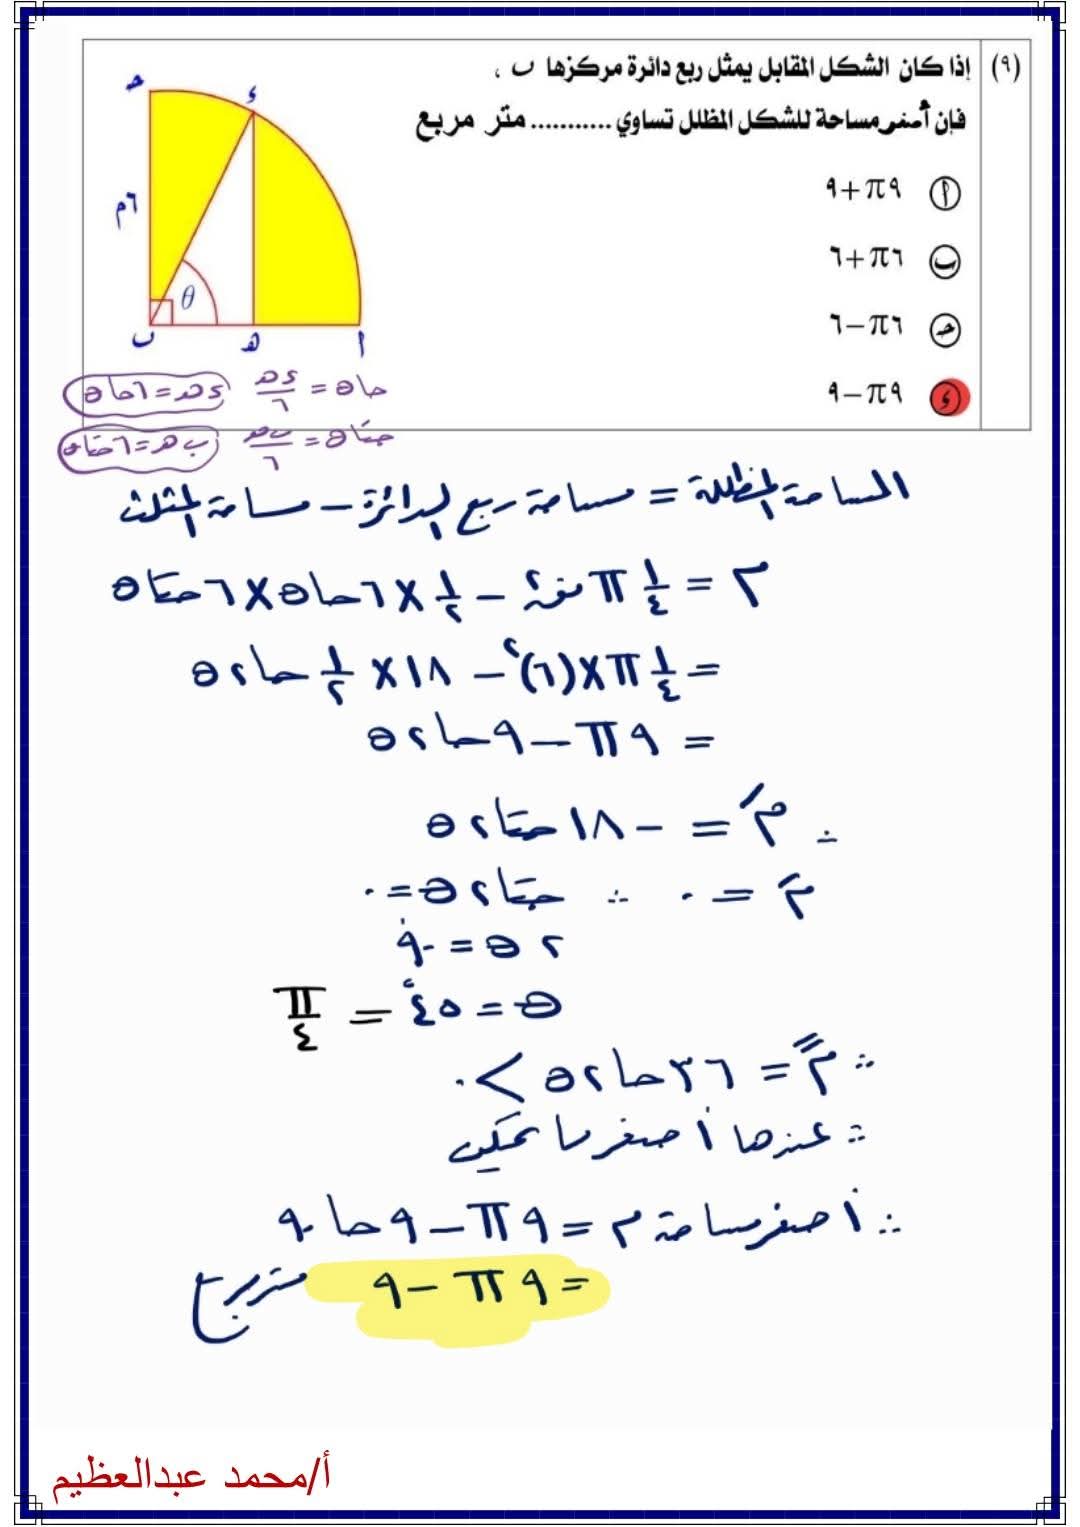 (٩) إذا كان الشكل المقابل يمثل ربع دائرة مركزها ب ،
فإن أصغر مساحة للشكل المظلل تساوي ........... متر مربع
أ ٩π+٩
ب ٦π+٦
جـ ٦π−٦
د ٩π−٩
جـ
د
٦م
θ
ب
هـ
أ
حا θ = د هـ / ٦ د هـ = ٦ حا θ
حتا θ = ب هـ / ٦ ب هـ = ٦ حتا θ
المساحة المظللة = مساحة ربع الدائرة − مساحة المثلث
م = ١/٤ π نق٢ − ١/٢ × ٦ حا θ × ٦ حتا θ
= ١/٤ π × (٦)٢ − ١٨ × ١/٢ حا ٢θ
= ٩π − ٩ حا ٢θ
∴ مَ = − ١٨ حتا ٢θ
مَ = ٠ ∴ حتا ٢θ = ٠
٢θ = ٩٠°
θ = ٤٥° = π/٤
∵ مً = ٣٦ حا ٢θ > ٠
∴ عندها أصغر ما يمكن
∴ أصغر مساحة م = ٩π − ٩ حا ٩٠
= ٩π − ٩ متر مربع
أ/محمد عبدالعظيم